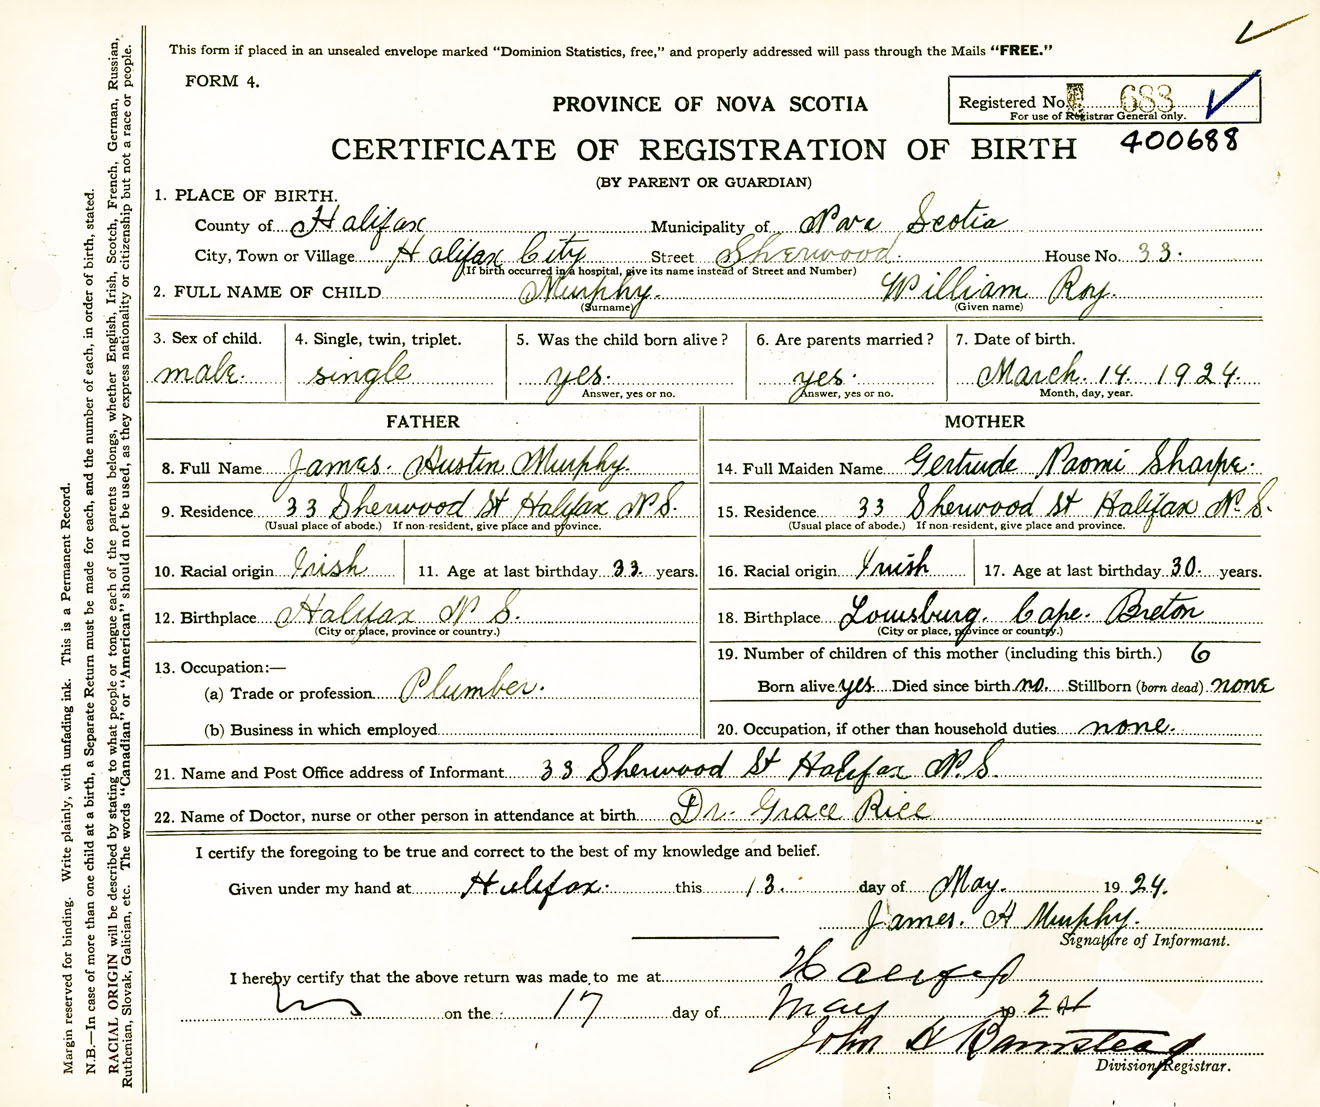 This form if placed in an unsealed envelope marked “Dominion Statistics, free,” and properly addressed will pass through the Mails “FREE.”
FORM 4.
PROVINCE OF NOVA SCOTIA
Registered No. 683
For use of Registrar General only.
CERTIFICATE OF REGISTRATION OF BIRTH
400688
(BY PARENT OR GUARDIAN)
1. PLACE OF BIRTH.
County of Halifax Municipality of Nova Scotia
City, Town or Village Halifax City Street Sherwood. House No. 33.
(If birth occurred in a hospital, give its name instead of Street and Number)
2. FULL NAME OF CHILD Murphy. William Roy.
(Surname) (Given name)
3. Sex of child. 4. Single, twin, triplet. 5. Was the child born alive? 6. Are parents married? 7. Date of birth.
male. single yes. yes. March. 14. 1924.
Answer, yes or no. Answer, yes or no. Month, day, year.
FATHER MOTHER
8. Full Name James. Austin Murphy. 14. Full Maiden Name Gertrude Naomi Sharpe.
9. Residence 33 Sherwood St Halifax N.S. 15. Residence 33 Sherwood St Halifax N.S.
(Usual place of abode.) If non-resident, give place and province. (Usual place of abode.) If non-resident, give place and province.
10. Racial origin Irish 11. Age at last birthday 33. years. 16. Racial origin Irish 17. Age at last birthday 30. years.
12. Birthplace Halifax N S. 18. Birthplace Louisburg. Cape. Breton
(City or place, province or country.) (City or place, province or country.)
13. Occupation:— 19. Number of children of this mother (including this birth.) 6
(a) Trade or profession Plumber. Born alive yes. Died since birth no. Stillborn (born dead) none
(b) Business in which employed 20. Occupation, if other than household duties none.
21. Name and Post Office address of Informant 33 Sherwood St Halifax N.S.
22. Name of Doctor, nurse or other person in attendance at birth Dr. Grace Rice
I certify the foregoing to be true and correct to the best of my knowledge and belief.
Given under my hand at Halifax. this 13. day of May. 1924.
James. A Murphy.
Signature of Informant.
I hereby certify that the above return was made to me at Halifax
on the 17 day of May 1924
John
Division Registrar.
Margin reserved for binding. Write plainly, with unfading ink. This is a Permanent Record.
N.B.—In case of more than one child at a birth, a Separate Return must be made for each, and the number of each, in order of birth, stated.
RACIAL ORIGIN will be described by stating to what people or tongue each of the parents belongs, whether English, Irish, Scotch, French, German, Russian,
Ruthenian, Slovak, Galician, etc. The words “Canadian” or “American” should not be used, as they express nationality or citizenship but not a race or people.